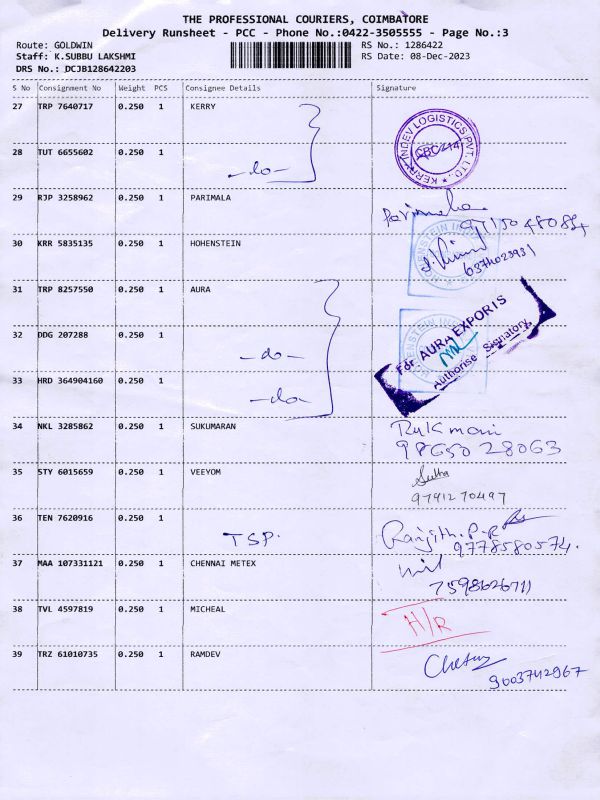 THE PROFESSIONAL COURIERS, COIMBATORE
Delivery Runsheet - PCC - Phone No.:0422-3505555 - Page No.:3
Route: GOLDWIN RS No.: 1286422
Staff: K.SUBBU LAKSHMI RS Date: 08-Dec-2023
DRS No.: DCJB128642203
S No Consignment No Weight PCS Consignee Details Signature
27 TRP 7640717 0.250 1 KERRY
KERRY INDEV LOGISTICS PVT. LTD.
CBC/214
28 TUT 6655602 0.250 1
-do-
29 RJP 3258962 0.250 1 PARIMALA
Parimala
30 KRR 5835135 0.250 1 HOHENSTEIN
HOHENSTEIN
6374023931
31 TRP 8257550 0.250 1 AURA
For AURA EXPORTS
Authorise Signatory
32 DDG 207288 0.250 1
-do-
33 HRD 364904160 0.250 1
-do-
34 NKL 3285862 0.250 1 SUKUMARAN Rukmani
98650 28063
35 STY 6015659 0.250 1 VEEYOM Sutha
9791270497
36 TEN 7620916 0.250 1
TSP. Ranjith.P.R
9778580574.
37 MAA 107331121 0.250 1 CHENNAI METEX
7598626711
38 TVL 4597819 0.250 1 MICHEAL H/R
39 TRZ 61010735 0.250 1 RAMDEV
9003742967